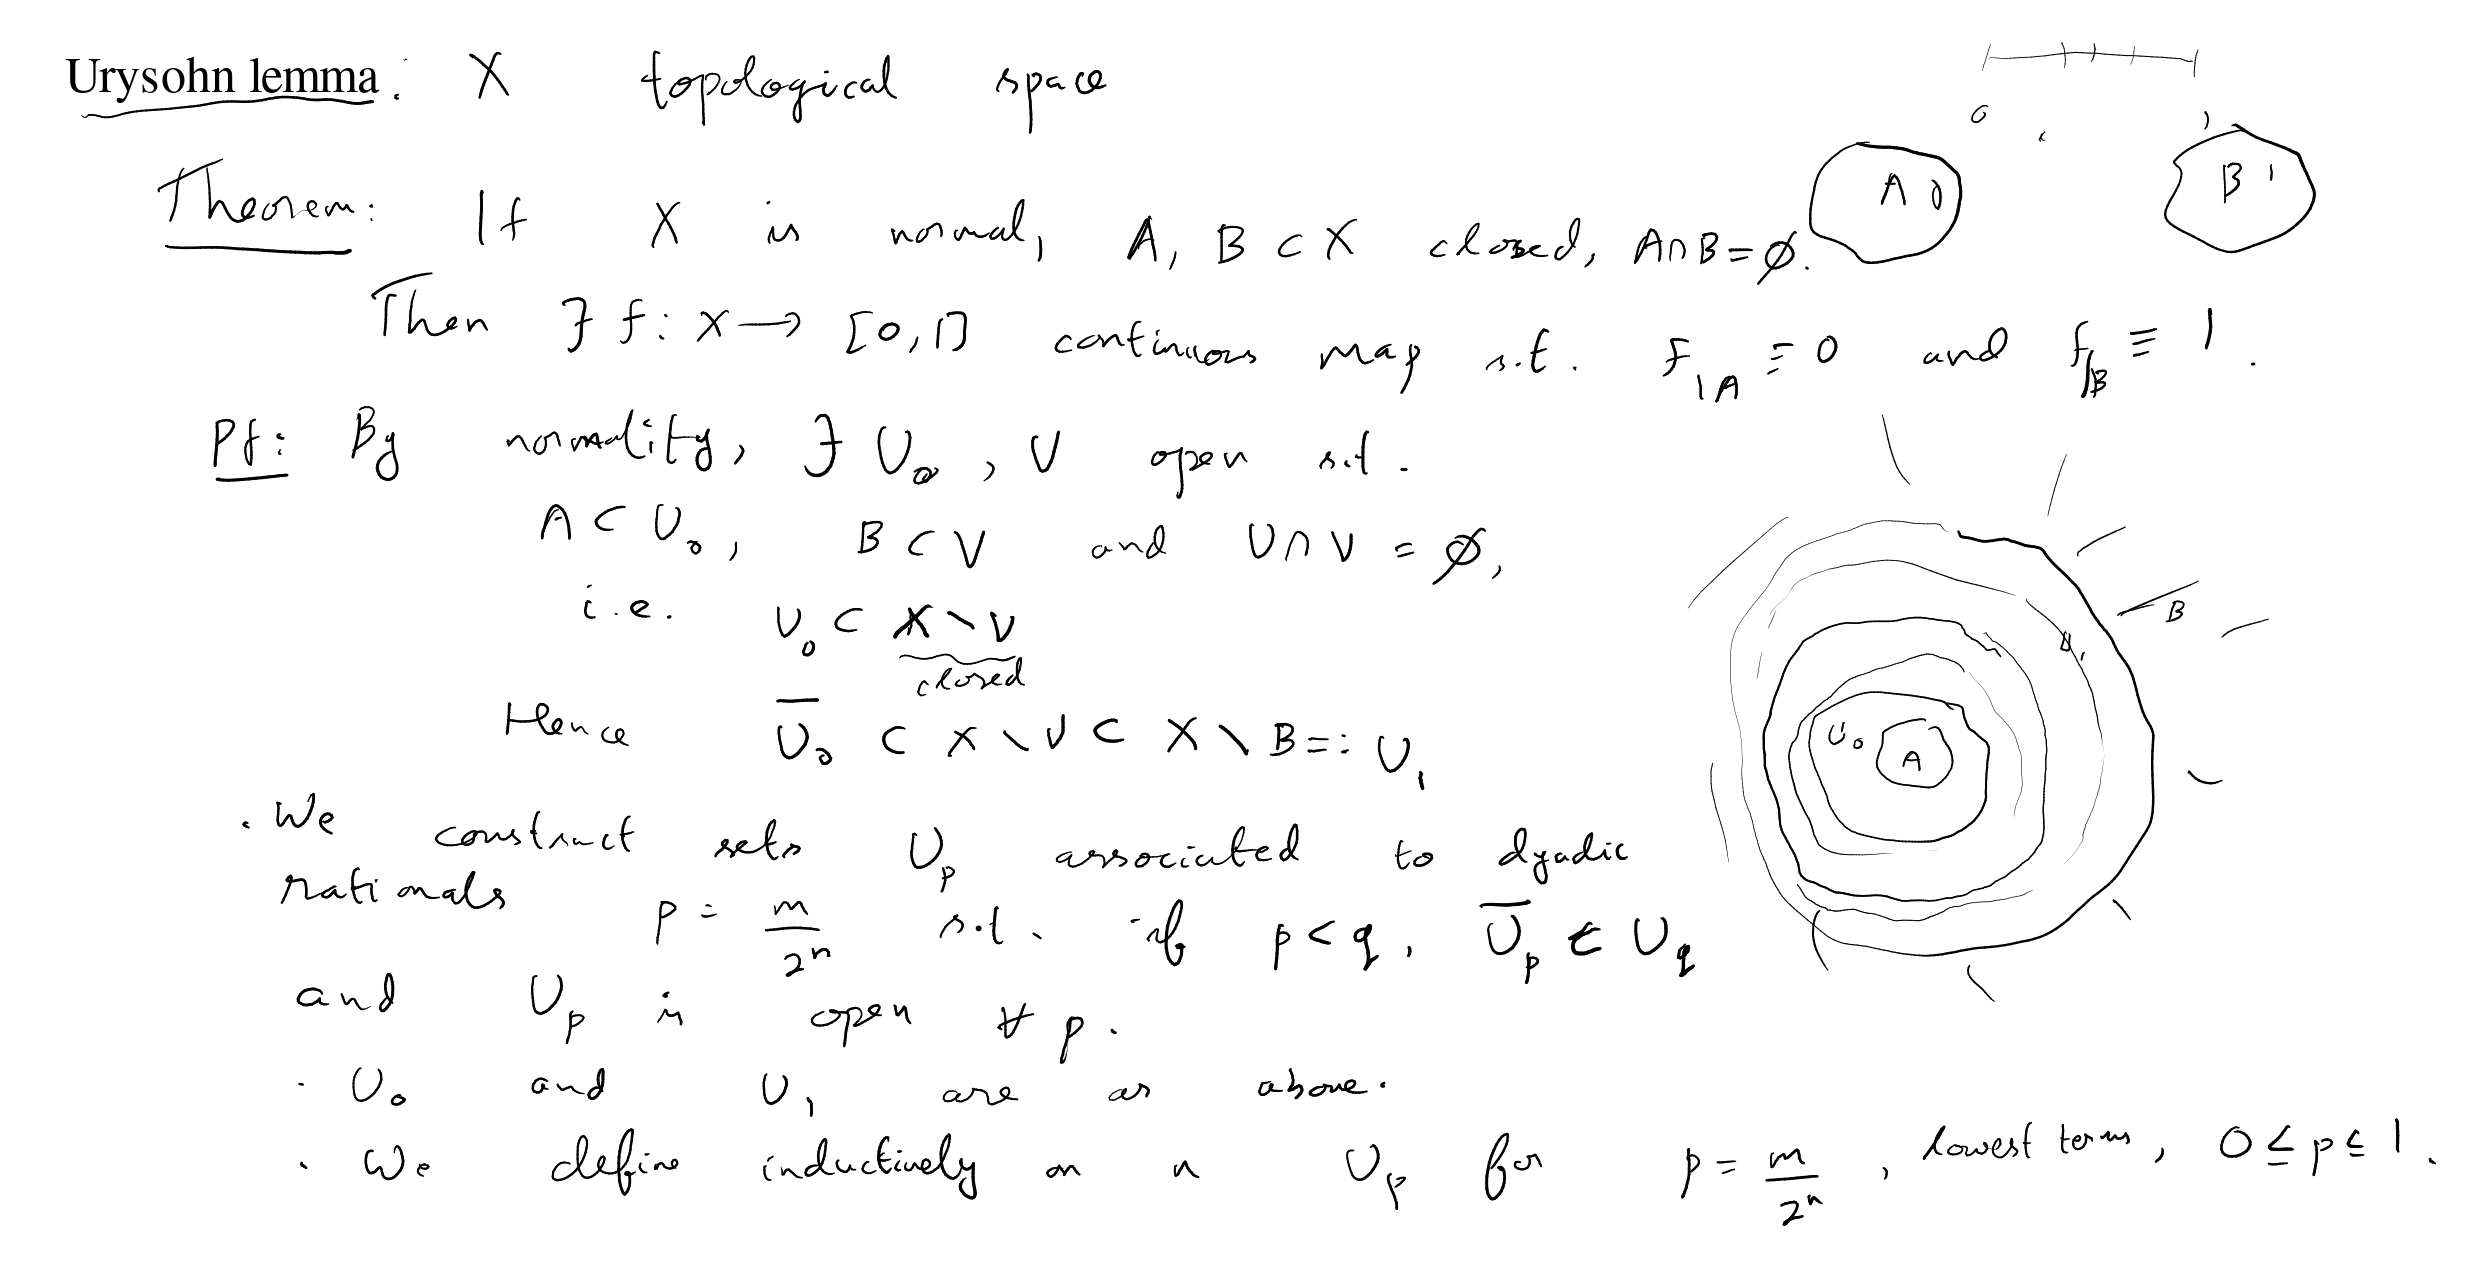 Urysohn lemma: X topological space
0 1
A 0 B 1
Theorem: If X is normal, A, B ⊂ X closed, A∩B=∅.
Then ∃ f: X → [0,1] continuous map s.t. F|A ≡ 0 and f|B ≡ 1.
Pf: By normality, ∃ U₀, V open s.t.
A ⊂ U₀, B ⊂ V and U∩V = ∅,
i.e. U₀ ⊂ X∖V
closed
Hence U̅₀ ⊂ X∖V ⊂ X∖B =: U₁
· We construct sets U_p associated to dyadic
rationals p = m/2ⁿ s.t. if p<q, U̅_p ⊂ U_q
and U_p is open ∀ p.
· U₀ and U₁ are as above.
· We define inductively on n U_p for p = m/2ⁿ, lowest terms, 0 ≤ p ≤ 1.
B
U₀ A